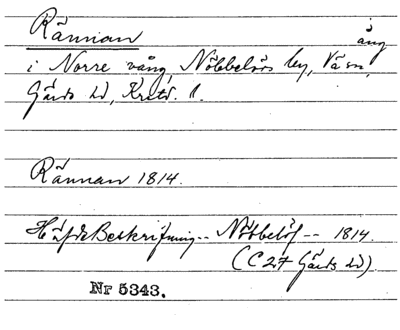 Rännan äng
i Norre vång, Nöbbelövs by, Vä sn,
Gärds hd, Krstd. l.
Rännan 1814.
HäfdeBeskrifning -- Nöbbelöf -- 1814.
(C 27 Gärds hd)
Nr 5343.